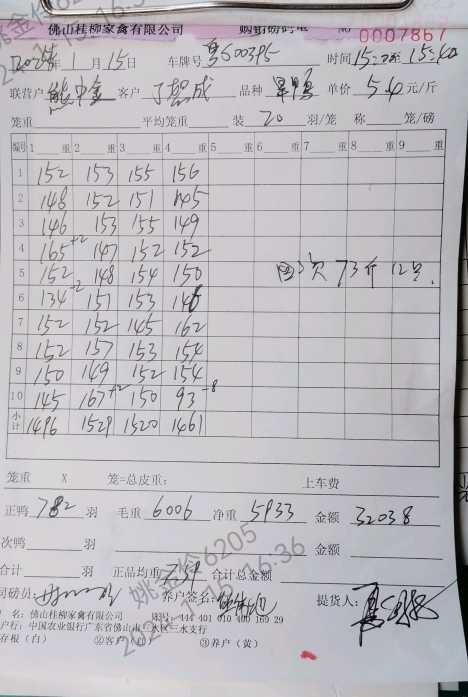 佛山桂柳家禽有限公司 购销磅码单 № 0007867
2024年1月15日 车牌号 粤S00395 时间 15:20至15:40
联营户 熊中金 客户 品种 单价 5.4 元/斤
笼重 平均笼重 装 20 羽/笼 称 笼/磅
编号 1 重 2 重 3 重 4 重 5 重 6 重 7 重 8 重 9 重
1 152 153 155 156
2 148 152 151 145
3 146 153 155 149
4 165+2 147 152 152
5 152 148 154 150
6 134-2 151 153 146
7 152 152 145 162
8 152 157 153 154
9 150 149 152 154
10 145 167+2 150 93-8
小计 1496 1529 1520 1461
次 73斤12只.
笼重 X 笼=总皮重: 上车费
正鸭 782 羽 毛重 6006 净重 5933 金额 32038
次鸭 羽 金额
合计 羽 正品均重 7.59 合计总金额
司磅员: 养户签名: 提货人:
户 名: 佛山桂柳家禽有限公司 账号: 444 401 010 400 160 29
户行: 中国农业银行广东省佛山市三水区三水支行
存根（白） ②客户（红） ③养户（黄）
姚金伶6205
16:36